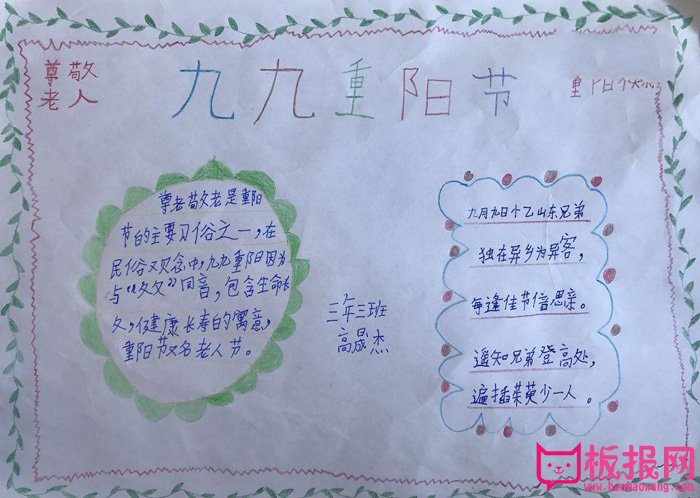 尊敬
老人
九九重阳节
重阳个大
尊老敬老是重阳
节的主要习俗之一,在
民俗观念中,九九重阳因为
与“久久”同音,包含生命长
久,健康长寿的寓意,
重阳节又名老人节。
三年三班
高晟杰
九月九日个乙山东兄弟
独在异乡为异客,
每逢佳节倍思亲。
遥知兄弟登高处,
遍插茱萸少一人。
板报网
www.banbaowang.com